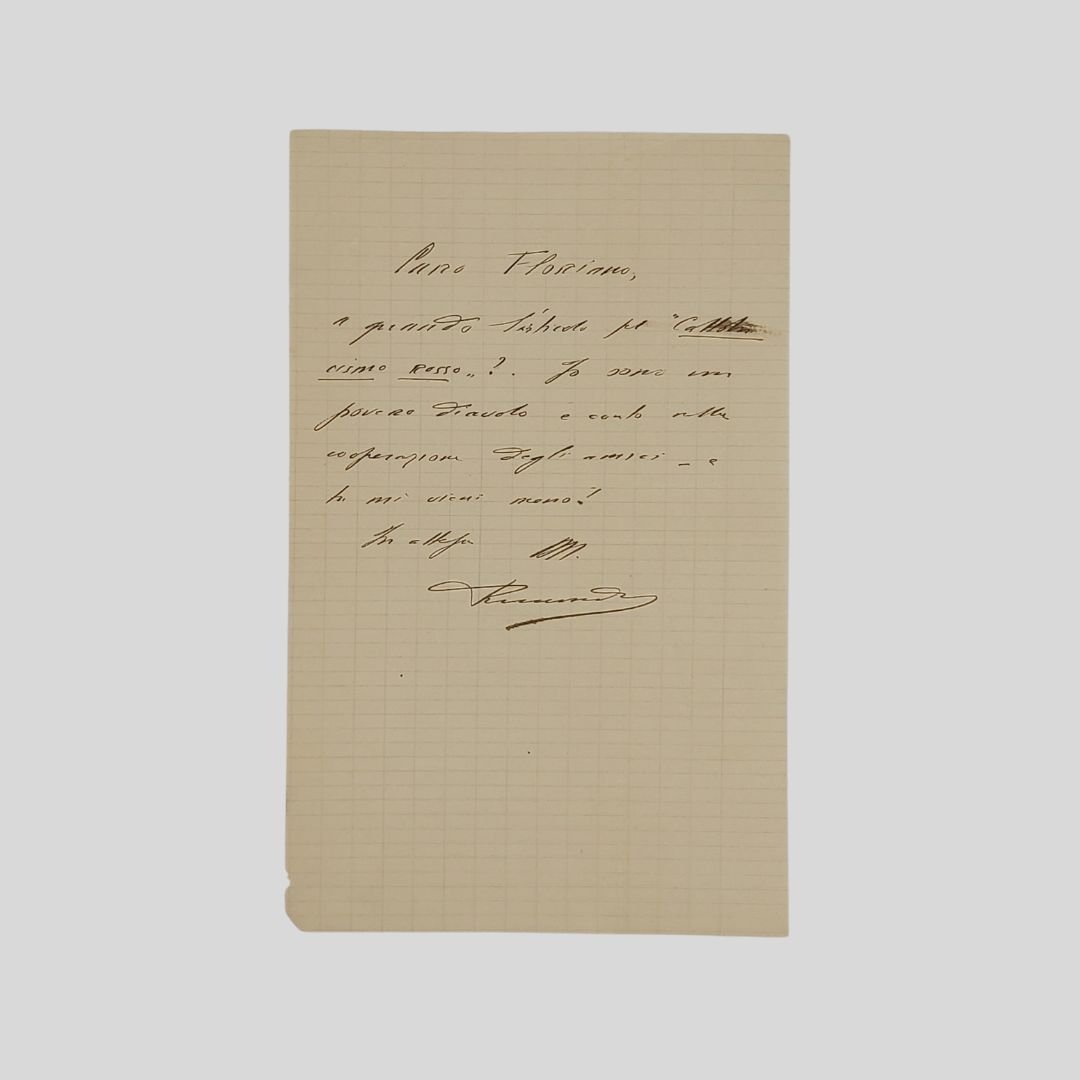 Caro Floriano,
a quando l'articolo pel "Cattoli
cismo rosso"?. Io sono un
povero diavolo e conto sulla
cooperazione degli amici – e
tu mi vieni meno!
In attesa